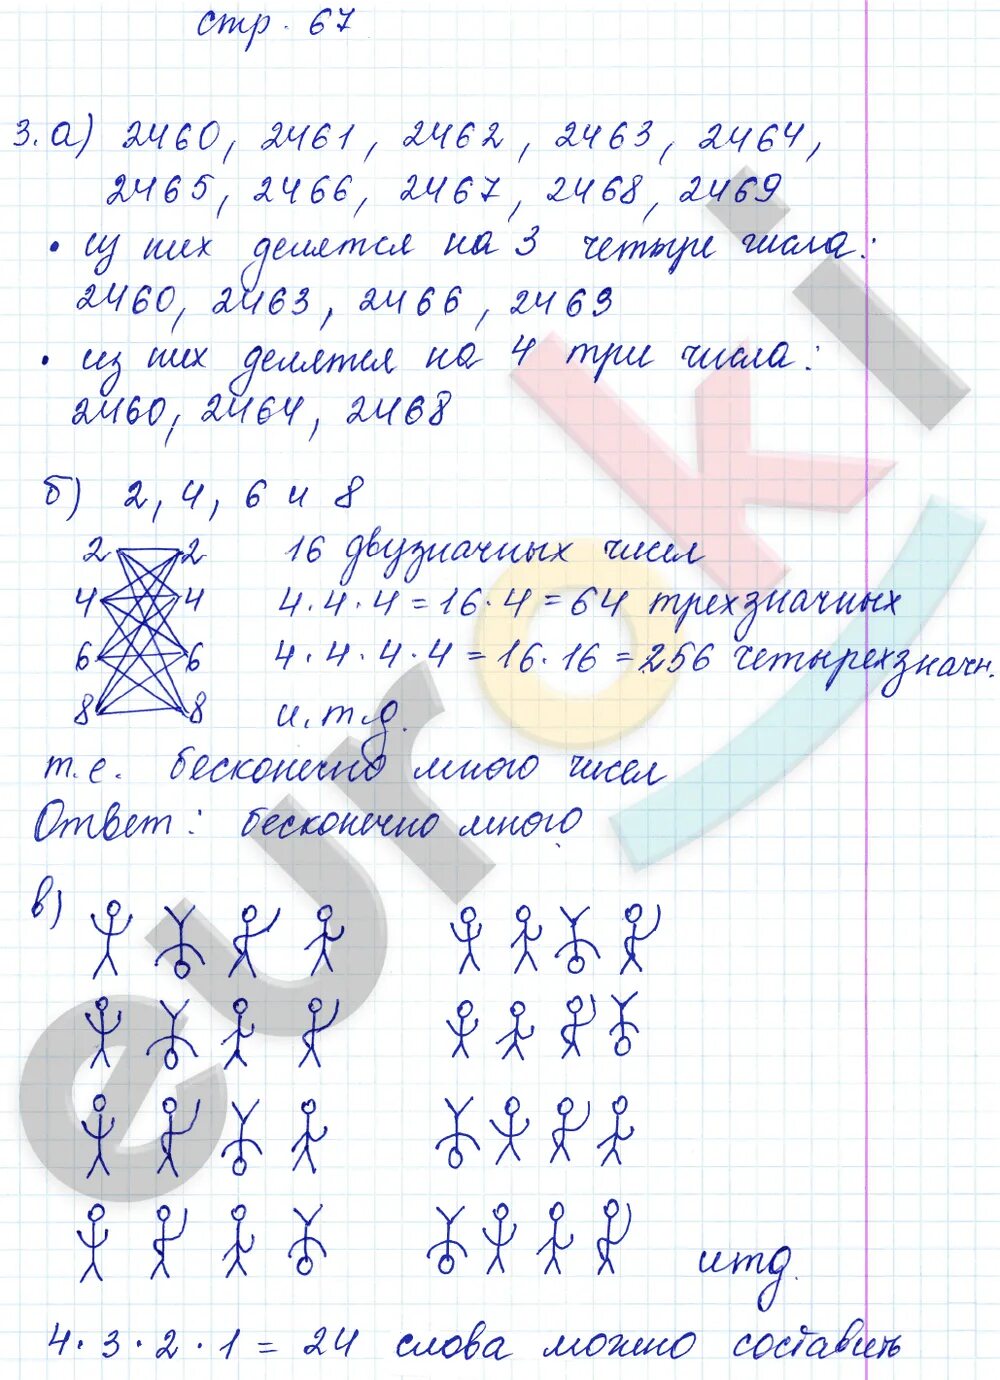 стр. 67
3. а) 2460, 2461, 2462, 2463, 2464,
2465, 2466, 2467, 2468, 2469
• из них делятся на 3 четыре числа:
2460, 2463, 2466, 2469
• из них делятся на 4 три числа:
2460, 2464, 2468
б) 2, 4, 6 и 8
2 2 16 двузначных чисел
4 4 4·4·4=16·4=64 трехзначных
6 6 4·4·4·4=16·16=256 четырехзначн.
8 8 и.т.д.
т.е. бесконечно много чисел
Ответ: бесконечно много
в)
итд.
4·3·2·1=24 слова можно составить
euroki